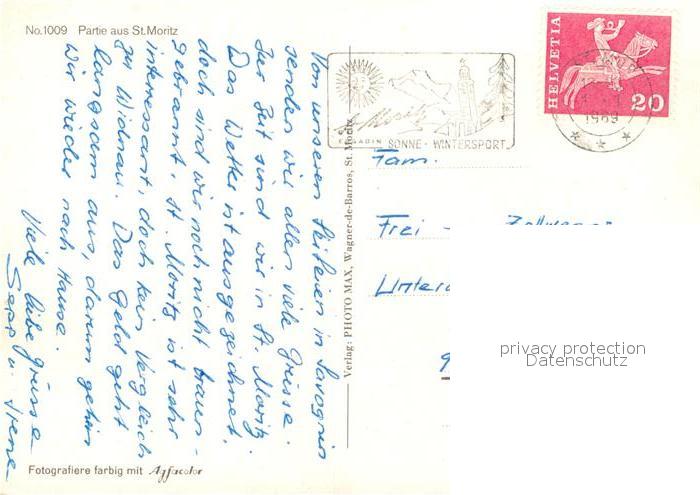 No.1009 Partie aus St.Moritz
Von unseren Skiferien in Savognin
senden wir allen viele Grüsse.
Zur Zeit sind wir in St. Moritz.
Das Wetter ist ausgezeichnet,
doch sind wir noch nicht braun-
gebrannt. St. Moritz ist sehr
interessant, doch kein Vergleich
zu Widnau. Das Geld geht
langsam aus, darum gehen
wir wieder nach Hause.
Viele liebe Grüsse
Sepp u. Irene
Fotografiere farbig mit Agfacolor
Verlag: PHOTO MAX, Wagner-de-Barros, St. Moritz
St. Moritz
ENGADIN SONNE - WINTERSPORT
HELVETIA
20
1969
Fam.
Frei -
privacy protection
Datenschutz